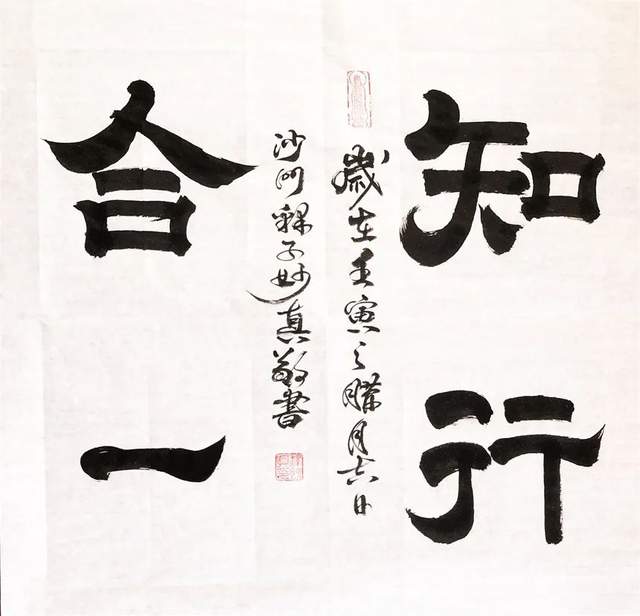 知行
歲在壬寅之臘月吉日
沙門釋子妙真敬書
合一